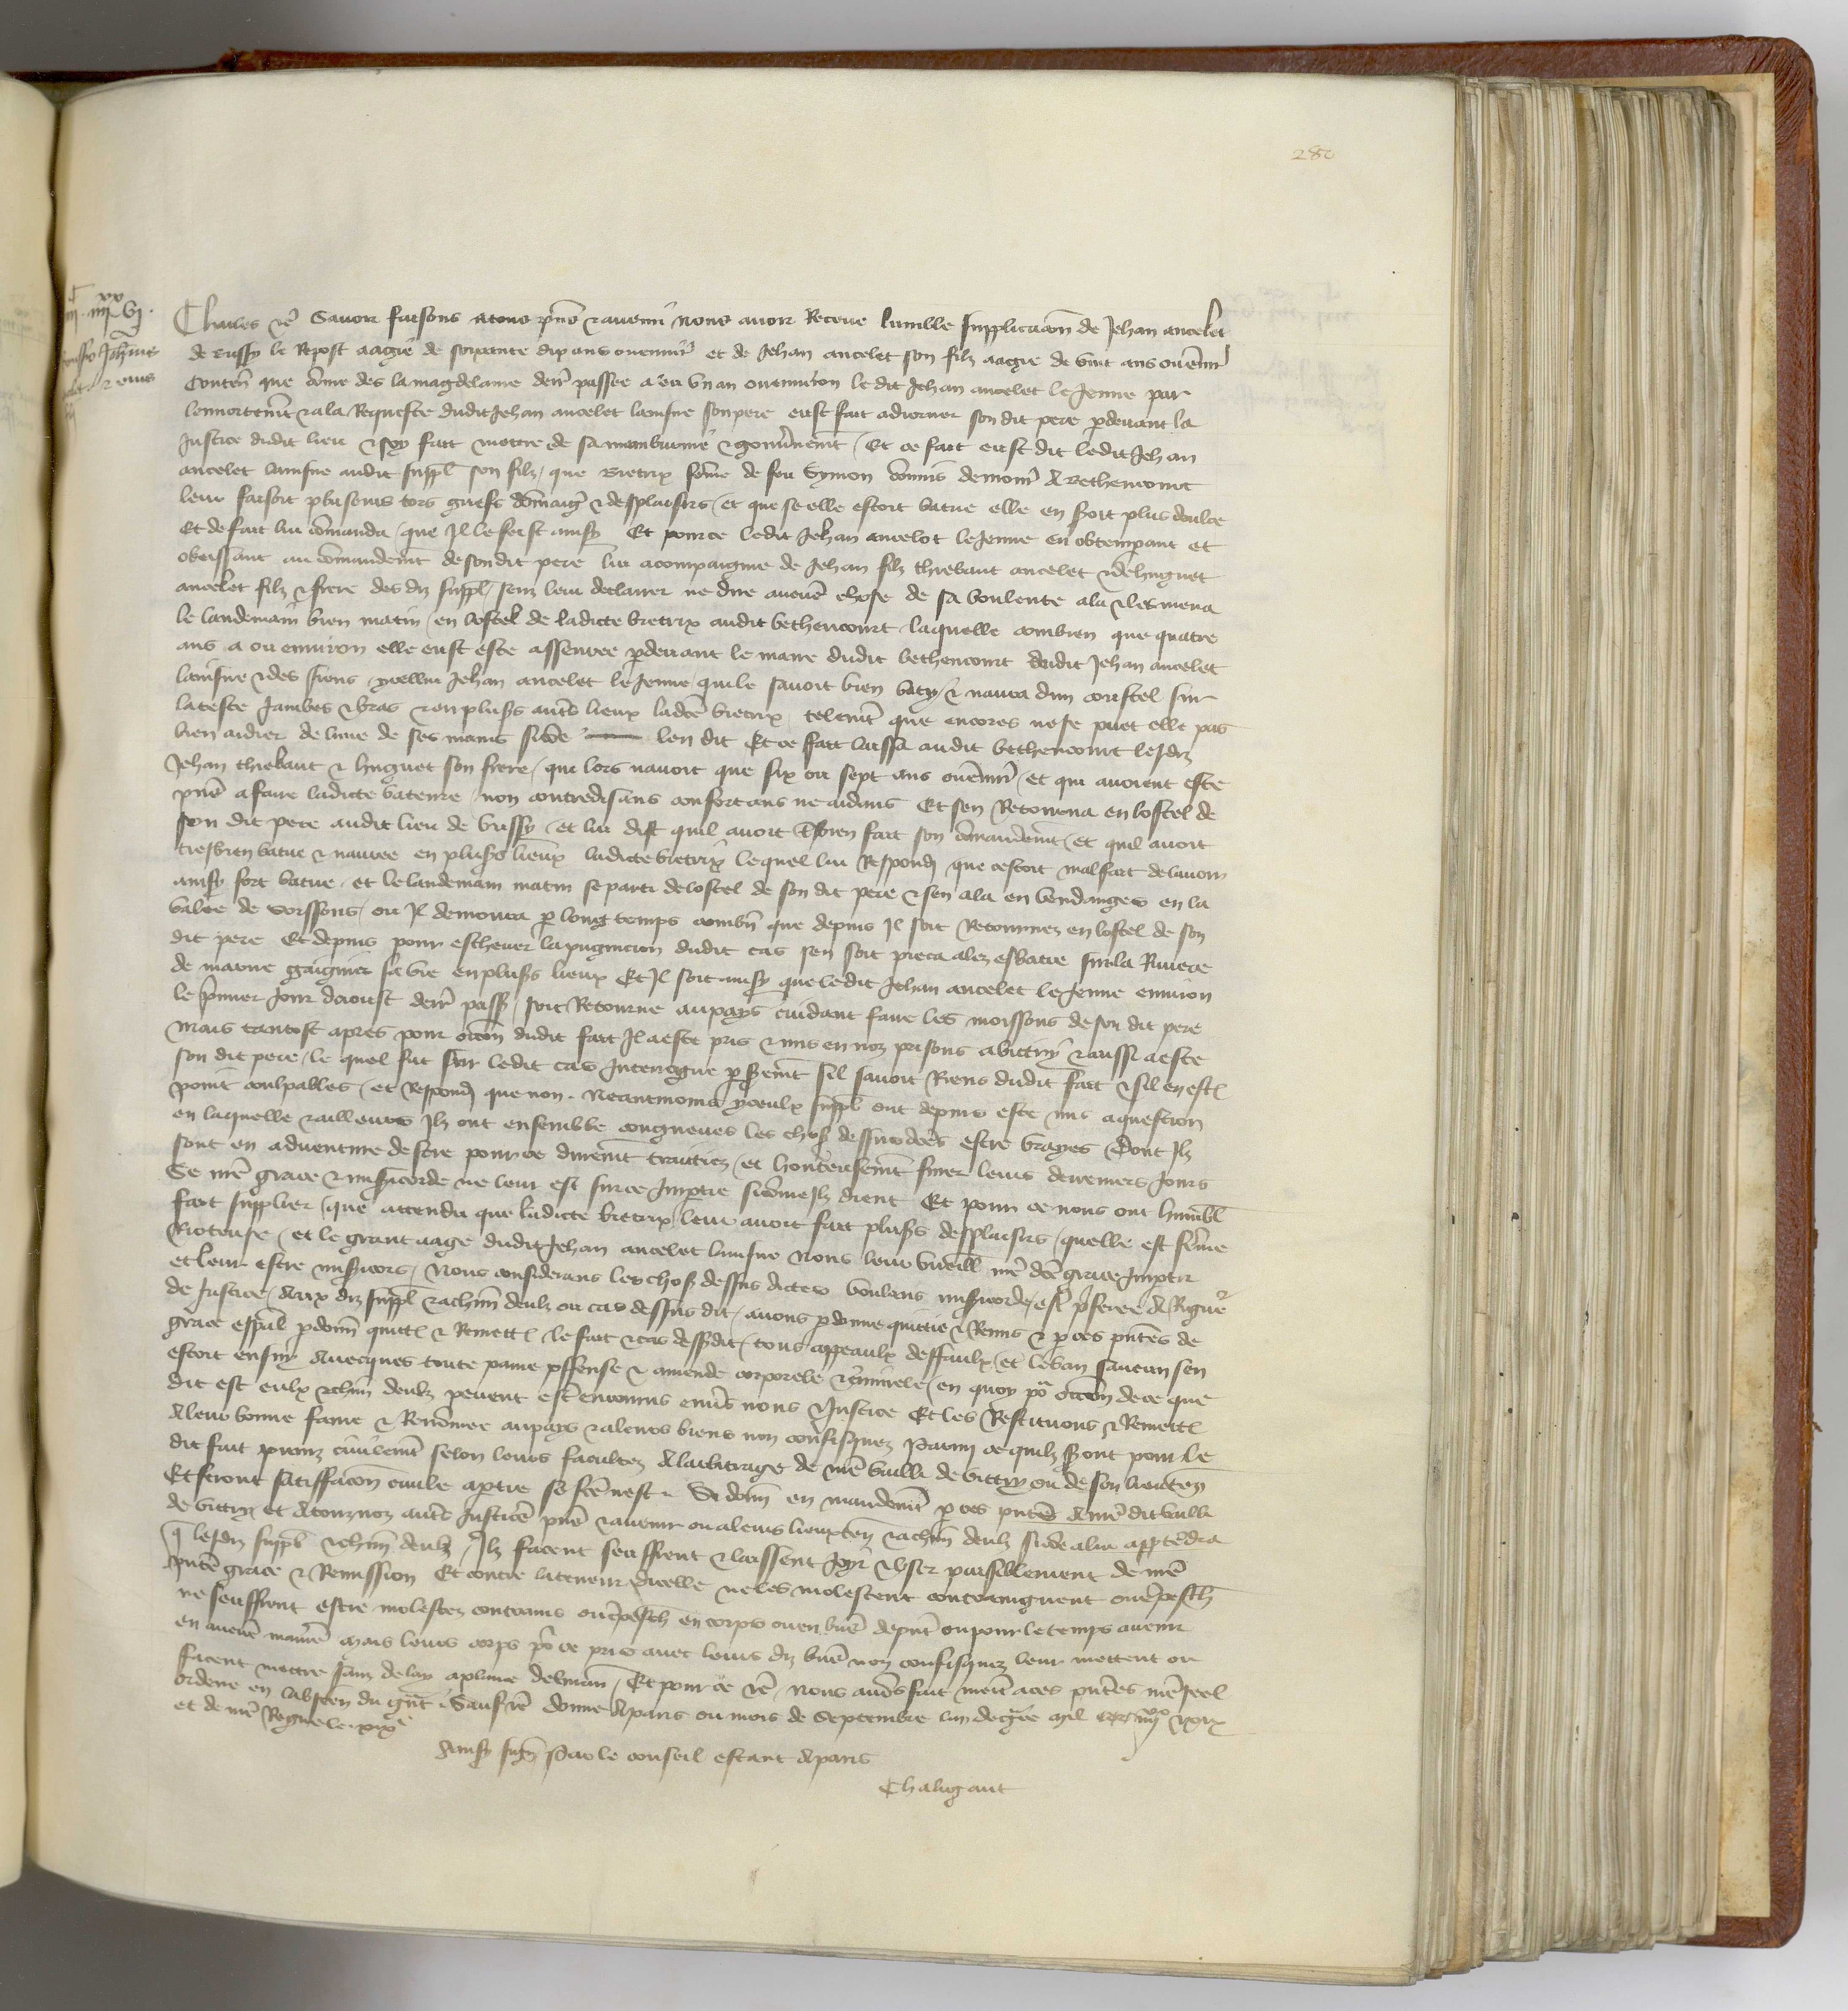 280
iiii xx vi.
Charles etc. Savoir faisons a tous pñs et avenir nous avoir Receue lumble supplicacõn de Jehan ancelet
de bussy le Repost aagié de soixante dix ans ou environ et de Jehan ancelet son filz aagié de vint ans ou environ
Conteñ que cõme des la magdelaine derr̃ passee a eu un an ou environ le dit Jehan ancelet le Jeune par
lenortemẽt et a la Requeste dudit Jehan ancelet lainsne son pere eust fait adiorner son dit pere p devant la
Justice dudit lieu et soy fait mettre de sa mambournie et gouvñement / Et ce fait eust dit ledit Jehan
ancelet lainsne audit suppl son filz / que Bietrix fẽme de feu Symon demour̃ a Bethencourt
leur faisoit plusieurs tors griefs dõmaig̃ et desplaisirs / et que se elle estoit batue elle en s̃oit plus doulce
Et de fait lui cõmanda / que Il le feist ainsy Et pour ce ledit Jehan ancelet le Jeune en obtemperant et
obeissant au cõmandemẽt de son dit pere lui acompaigne de Jehan filz thiebaut ancelet et de huguet
ancelet filz et frere des diz suppl / senz leur declairer ne dire aucũe chose de sa voulente ala et les mena
le landemain bien matin / en lostel de ladicte bietrix audit bethencourt laquelle combien que quatre
ans a ou environ elle eust este asseuree p devant le maire dudit bethencourt dudit Jehan ancelet
lainsne et des siens / ycellui Jehan ancelet le Jeune / qui le savoit bien baty / et navra dun coustel sur
la teste Jambes et bras et en plusʳs autres lieux ladcẽ bietrix / telemẽt que encores ne se puet elle pas
bien aidier de lune de ses mains sicõe len dit Et ce fait laissa audit bethencourt lesdiz
Jehan thiebaut et huguet son frere / qui lors navoit que six ou sept ans ou environ / et qui avoient este
pñs a faire ladicte bateure / non contredisans confortans ne aidans Et sen Retourna en lostel de
son dit pere audit lieu de bussy / et lui dist quil avoit tresbien fait son cõmandemẽt / et quil avoit
tresbien batue et navree en plusʳs lieux ladicte bietrix lequel lui Respond que cestoit mal fait de lavoir
ainsy fort batue / et le landemain matin se parti de lostel de son dit pere et sen ala en vendanges en la
valee de soissons / ou Il demoura p long temps combñ que depuis Il soit Retournez en lostel de son
dit pere Et depuis pour eschever la pugnicion dudit cas sen soit pieca alez esbatre sur la Riviere
de marne gaignier sa vie en plusʳs lieux Et Il soit ainsy que ledit Jehan ancelet le Jeune environ
le p̃mier Jour daoust derr̃ passe / soit Retourne au pays cuidant faire les moissons de son dit pere
Mais tantost apres pour occõn dudit fait Il a este pris et mis en noz prisons a victry et aussi a este
son dit pere / le quel fut sur ledit cas Interrogue p s̃ement sil savoit Riens dudit fait et sil en est
point coulpables / et Respond que non. Neantmoins yceulx suppl ont depuis este mis a question
en laquelle et ailleurs Ilz ont ensemble congneues les choses dessus dces estre vrayes Dont Ilz
sont en adventure destre pour ce durement traictiez / et honteusemẽt finer leurs derreniers Jours
Se nr̃e grace et misericorde ne leur est sur ce Impartie sicõme Ilz dient Et pour ce nous ont humbl
fait supplier / que attendu que ladicte bietrix leur avoit fait plusʳs desplaisirs / quelle est fẽme
Rioteuse / et le grant aage dudit Jehan ancelet lainsne Nous leur vueill nr̃e dcẽ grace Impartir
et leur estre misericors / Nous considerans les choses dessus dictes voulans misericorde est̃ p̃feree a Rigueur
de Justice / Aux diz suppl et a chũn deulz ou cas dessus dit / avons p donne quittie et Remis et p ces pñtes de
grace espãl p donñ quitt et Remett le fait et cas dessus dit / tous appeaulx deffaulx / et le ban saucun sen
estoit ensuy Avecques toute paine offense et amende corporele et criminele / en quoy po occõn de ce que
dit est eulx et chũn deulz pevent est̃ encourus env̄s nous et Justice Et les Restituons et Remett
A leur bonne fame et Renõmee au pays et a leurs biens non confisquez Parmi ce quilz s̃ont pour le
dit fait puniz civilemẽt selon leurs facultez A larbitrage de nr̃e bailli de vittry ou de son lieuteñ
Et feront satisfacõn civile a partie se fcẽ nest / Si donñ en mandemẽt p ces pñtes A nr̃e dit bailli
de vittry et A touz noz autres Justicẽs pñs et avenir ou a leurs lieuxteñ et a chũn deulz sicõe a lui apptẽdra
q lesdiz suppl et chũn deulz Ilz facent seuffrent et laissent Joyr et user paisiblement de nr̃e
pñte grace et Remission Et contre la teneur dicelle ne les molestent contraingnent ou empesch
ne seuffrent estre molestez contrains ou empesch en corps ou en biẽs de pñt ou pour le temps avenir
en aucũe maniẽre Mais leurs corps po ce pris avec leurs diz biẽs non confisquez leur mettent ou
facent mettre sanz delay a plaine delivran Et pour ce etc. Nous avõs fait mett̃ a ces pñtes nr̃e seel
ordene en labsẽn du grãt. Sauf etc. Donne A paris ou mois de Septembre lan de grãce mil ccc iiii xx xix
et de nr̃e Regne le xix e
Ainsy sigñ Par le conseil estant A paris
Chaligaut